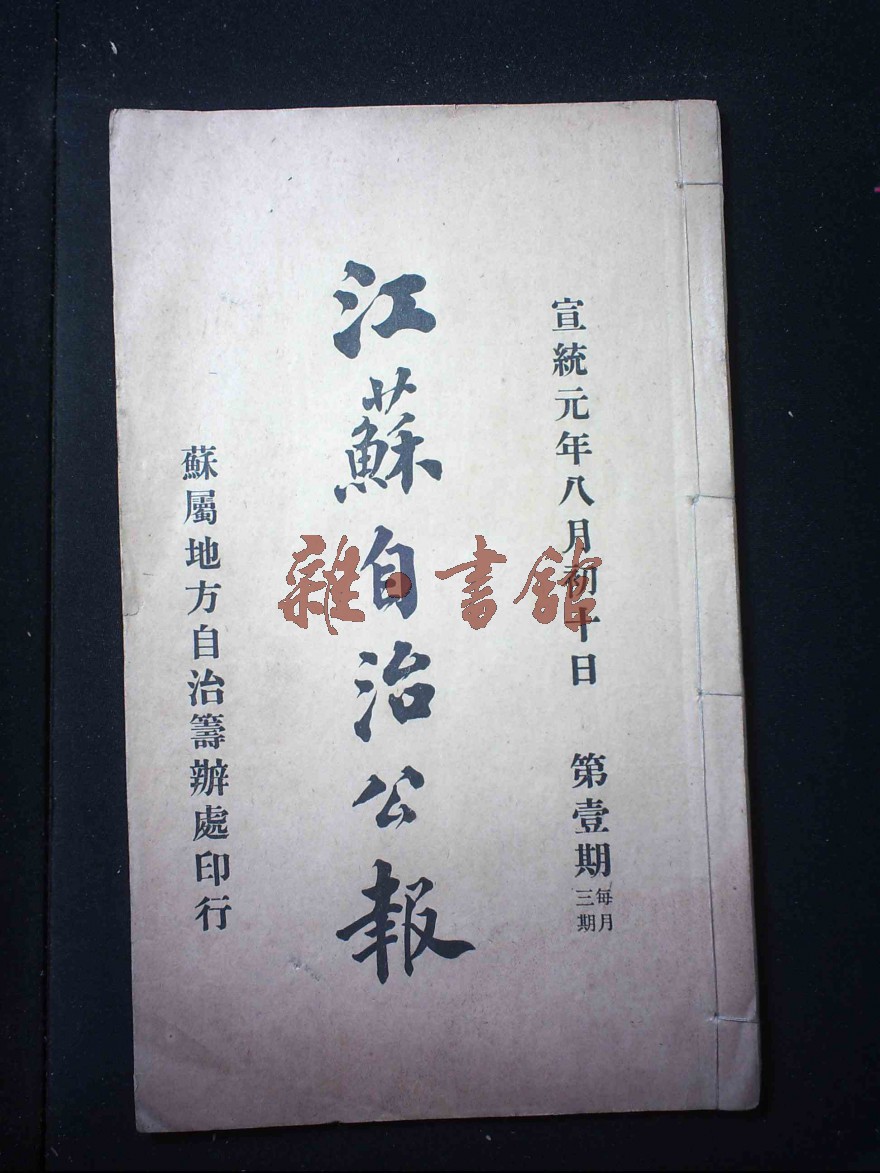 宣統元年八月初十日 第壹期 每月三期
江蘇自治公報
蘇屬地方自治籌辦處印行
雜·書館